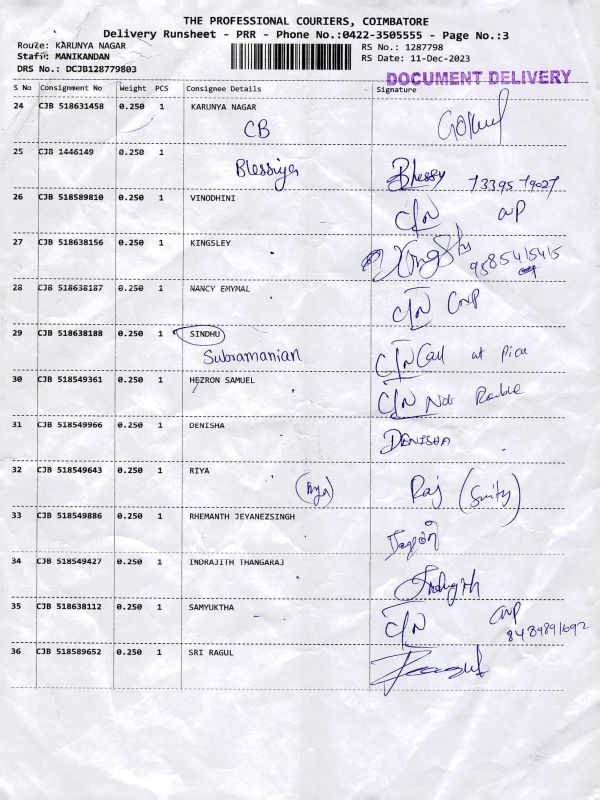 THE PROFESSIONAL COURIERS, COIMBATORE
Delivery Runsheet - PRR - Phone No.:0422-3505555 - Page No.:3
Route: KARUNYA NAGAR RS No.: 1287798
Staff: MANIKANDAN RS Date: 11-Dec-2023
DRS No.: DCJB128779803
DOCUMENT DELIVERY
S No Consignment No Weight PCS Consignee Details Signature
24 CJB 518631458 0.250 1 KARUNYA NAGAR
CB Gokul
25 CJB 1446149 0.250 1
Blessiya Blessy 7339579027
26 CJB 518589810 0.250 1 VINODHINI
C/N
27 CJB 518638156 0.250 1 KINGSLEY
9585415415
28 CJB 518638187 0.250 1 NANCY EMYMAL
C/N
29 CJB 518638188 0.250 1 SINDHU
Subramanian C/N Call at
30 CJB 518549361 0.250 1 HEZRON SAMUEL
C/N
31 CJB 518549966 0.250 1 DENISHA
DENISHA
32 CJB 518549643 0.250 1 RIYA
Raj
33 CJB 518549886 0.250 1 RHEMANTH JEYANEZSINGH
34 CJB 518549427 0.250 1 INDRAJITH THANGARAJ
35 CJB 518638112 0.250 1 SAMYUKTHA
C/N
36 CJB 518589652 0.250 1 SRI RAGUL